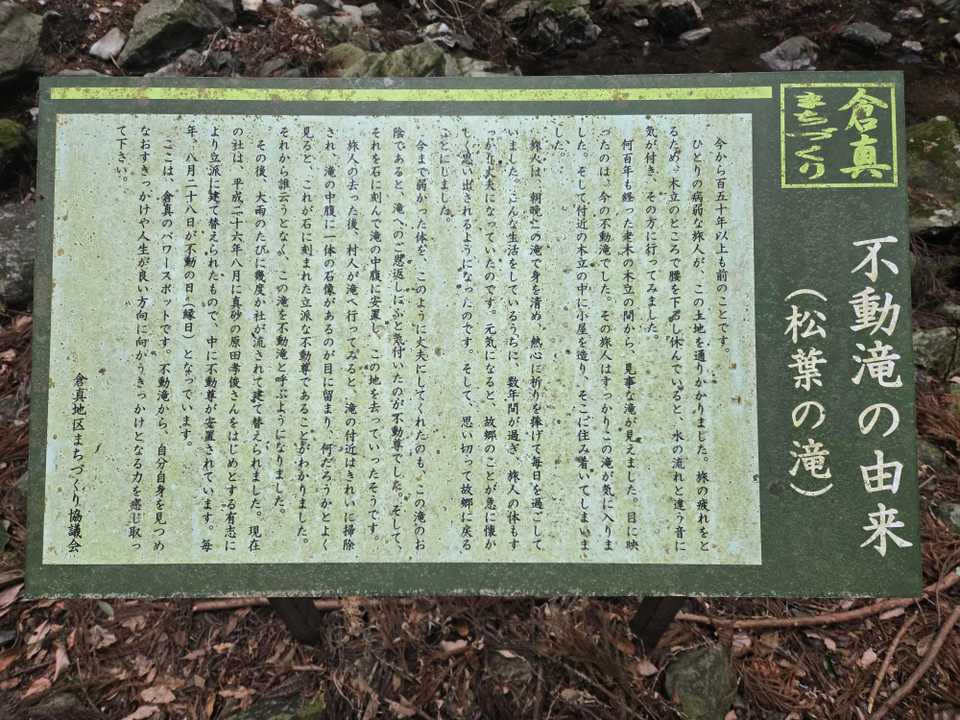 倉真
まちづくり
不動滝の由来
（松葉の滝）
今から百五十年以上も前のことです。
ひとりの病弱な旅人が、この土地を通りかかりました。旅の疲れをと
るため、木立のところで腰を下ろし休んでいると、水の流れと違う音に
気が付き、その方に行ってみました。
何百年も経った老木の木立の間から、見事な滝が見えました。目に映
ったのは、今の不動滝でした。その旅人はすっかりこの滝が気に入りま
した。そして付近の木立の中に小屋を造り、そこに住み着いてしまいま
した。
旅人は、朝晩この滝で身を清め、熱心に祈りを捧げて毎日を過ごして
いました。こんな生活をしているうちに、数年間が過ぎ、旅人の体もす
っかり丈夫になっていたのです。元気になると、故郷のことが急に懐か
しく思い出されるようになったのです。そして、思い切って故郷に戻る
ことにしました。
今まで弱かった体を、このように丈夫にしてくれたのも、この滝のお
陰であると、滝へのご恩返しにふと気付いたのが不動尊でした。そして、
それを石に刻んで滝の中腹に安置し、この地を去っていったそうです。
旅人の去った後、村人が滝へ行ってみると、滝の付近はきれいに掃除
され、滝の中腹に一体の石像があるのが目に留まり、何だろうかとよく
見ると、これが石に刻まれた立派な不動尊であることがわかりました。
それから誰云うとなく、この滝を不動滝と呼ぶようになりました。
その後、大雨のたびに幾度か社が流されて建て替えられました。現在
の社は、平成二十六年八月に真砂の原田孝俊さんをはじめとする有志に
より立派に建て替えられたもので、中に不動尊が安置されています。毎
年、八月二十八日が不動の日（縁日）となっています。
ここは、倉真のパワースポットです。不動滝から、自分自身を見つめ
なおすきっかけや人生が良い方向に向かうきっかけとなる力を感じ取っ
て下さい。
倉真地区まちづくり協議会